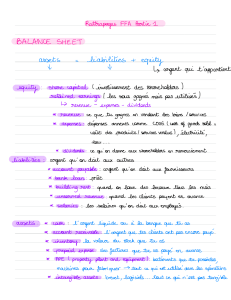 Rattrapages FFA Partie 1
BALANCE SHEET
assets = liabilities + equity
↳ argent qui t'appartient
equity share capital (investissement des shareholders)
retained earnings (les sous gagnés mais pas utilisés)
↳ revenue - expenses - dividends
revenue : ce que tu gagnes en vendant des biens / services
expenses : dépenses annexes comme COGS (cost of goods sold,
coût des produits / services vendus), électricité,
eau ...
dividends : ce qu'on donne aux shareholders en remerciement
liabilities argent qu'on doit aux autres
account payable : argent qu'on doit aux fournisseurs
bank loan : prêt
building rent : quand on loue des locaux tous les mois
unearned revenue : quand les clients payent en avance
salaries : les salaires qu'on doit aux employés
assets cash : l'argent liquide ou à la banque que tu as
account receivable : l'argent que tes clients ont pas encore payé
inventory : la valeur du stock que tu as
prepaid expense : des factures que tu as payé en avance
PPE (property plant and equipment) : batiments que tu possèdes,
machines pour fabriquer → tout ce qui est utilisé dans les opérations
intangible assets : brevet, logiciels - tout ce qui n'est pas tangible